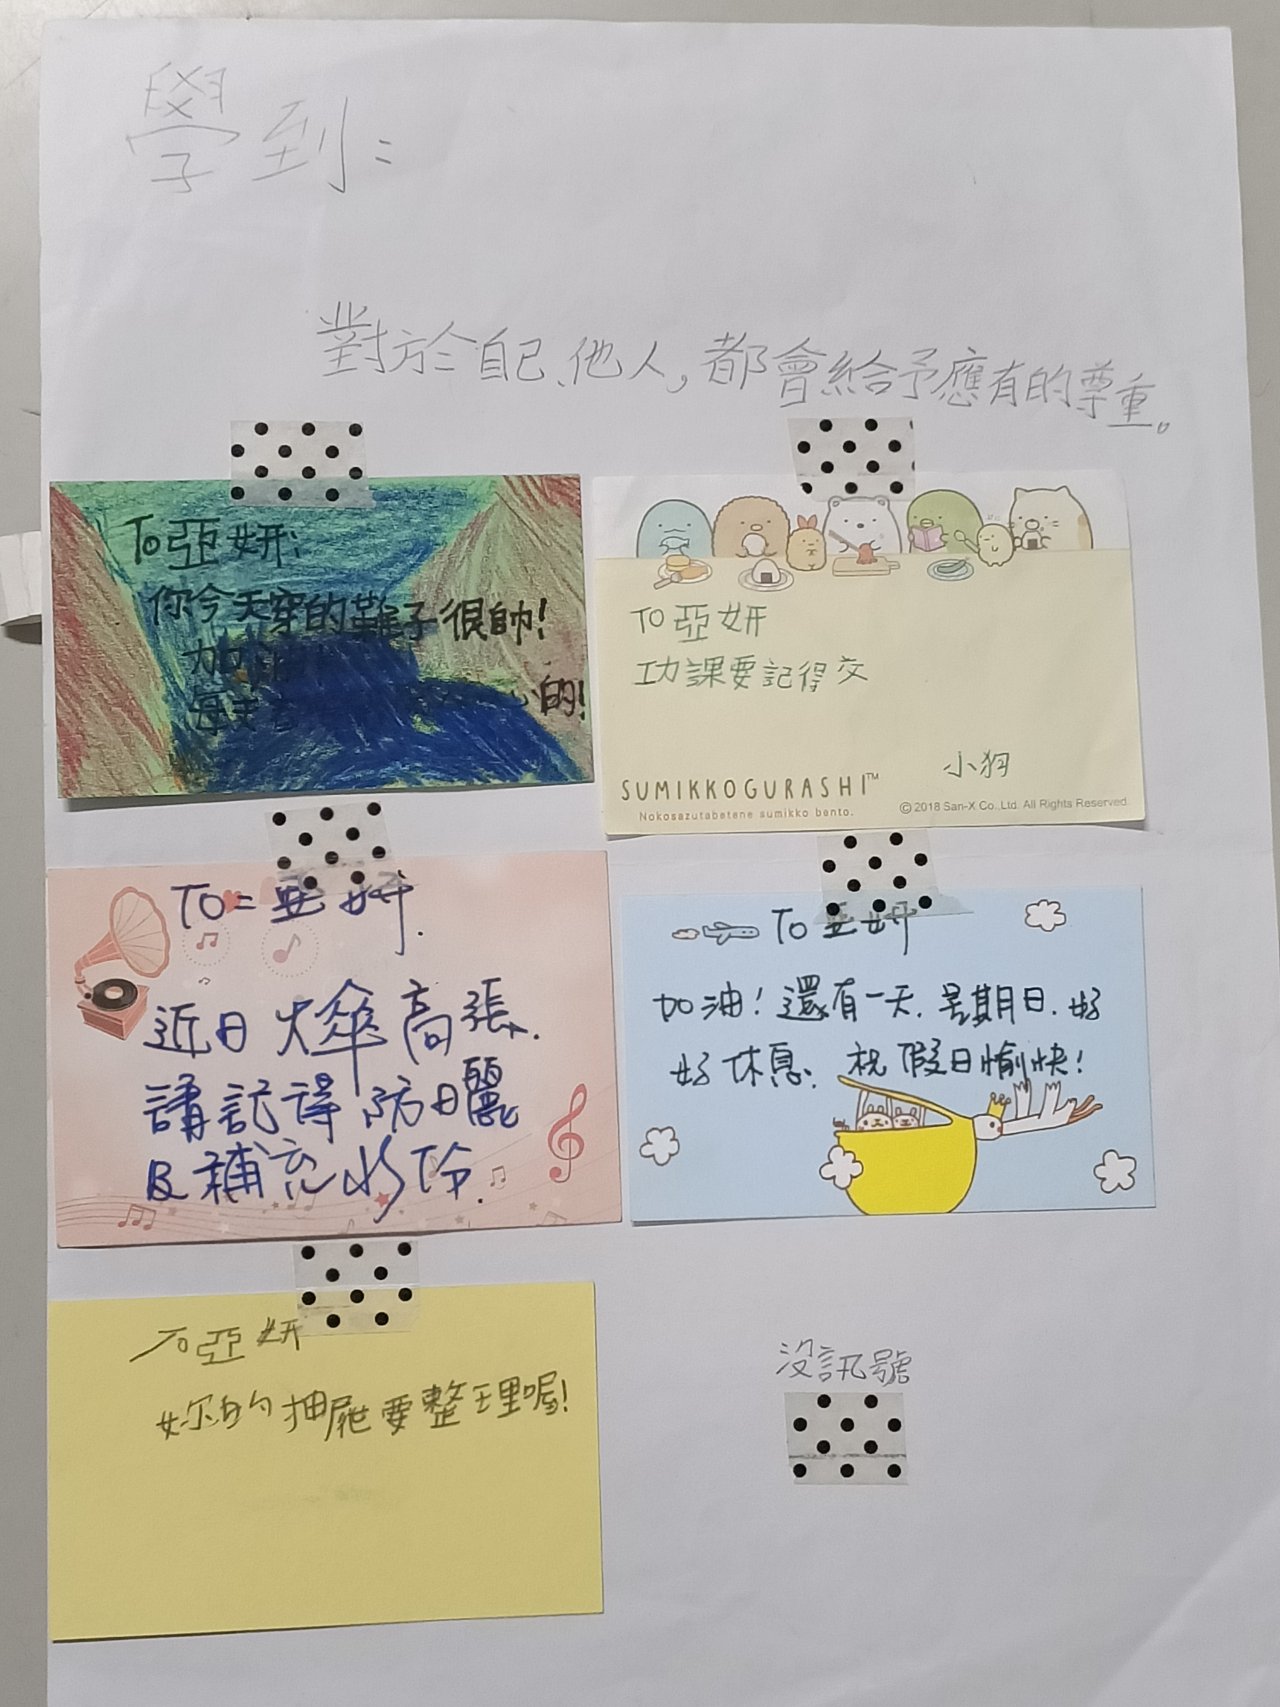 學到:
對於自己、他人,都會給予應有的尊重。
To 亞妍:
你今天穿的鞋子很帥!
加油!
每天
的!
To 亞妍
功課要記得交
小狗
SUMIKKOGURASHI™
Nokosazutabetene sumikko bento.
© 2018 San-X Co.,Ltd. All Rights Reserved.
To = 亞妍.
近日火傘高張.
請記得防曬
及補充水份.
To 亞妍
加油!還有一天.是期日.好
好休息.祝假日愉快!
To 亞妍
妳的抽屜要整理喔!
沒訊號